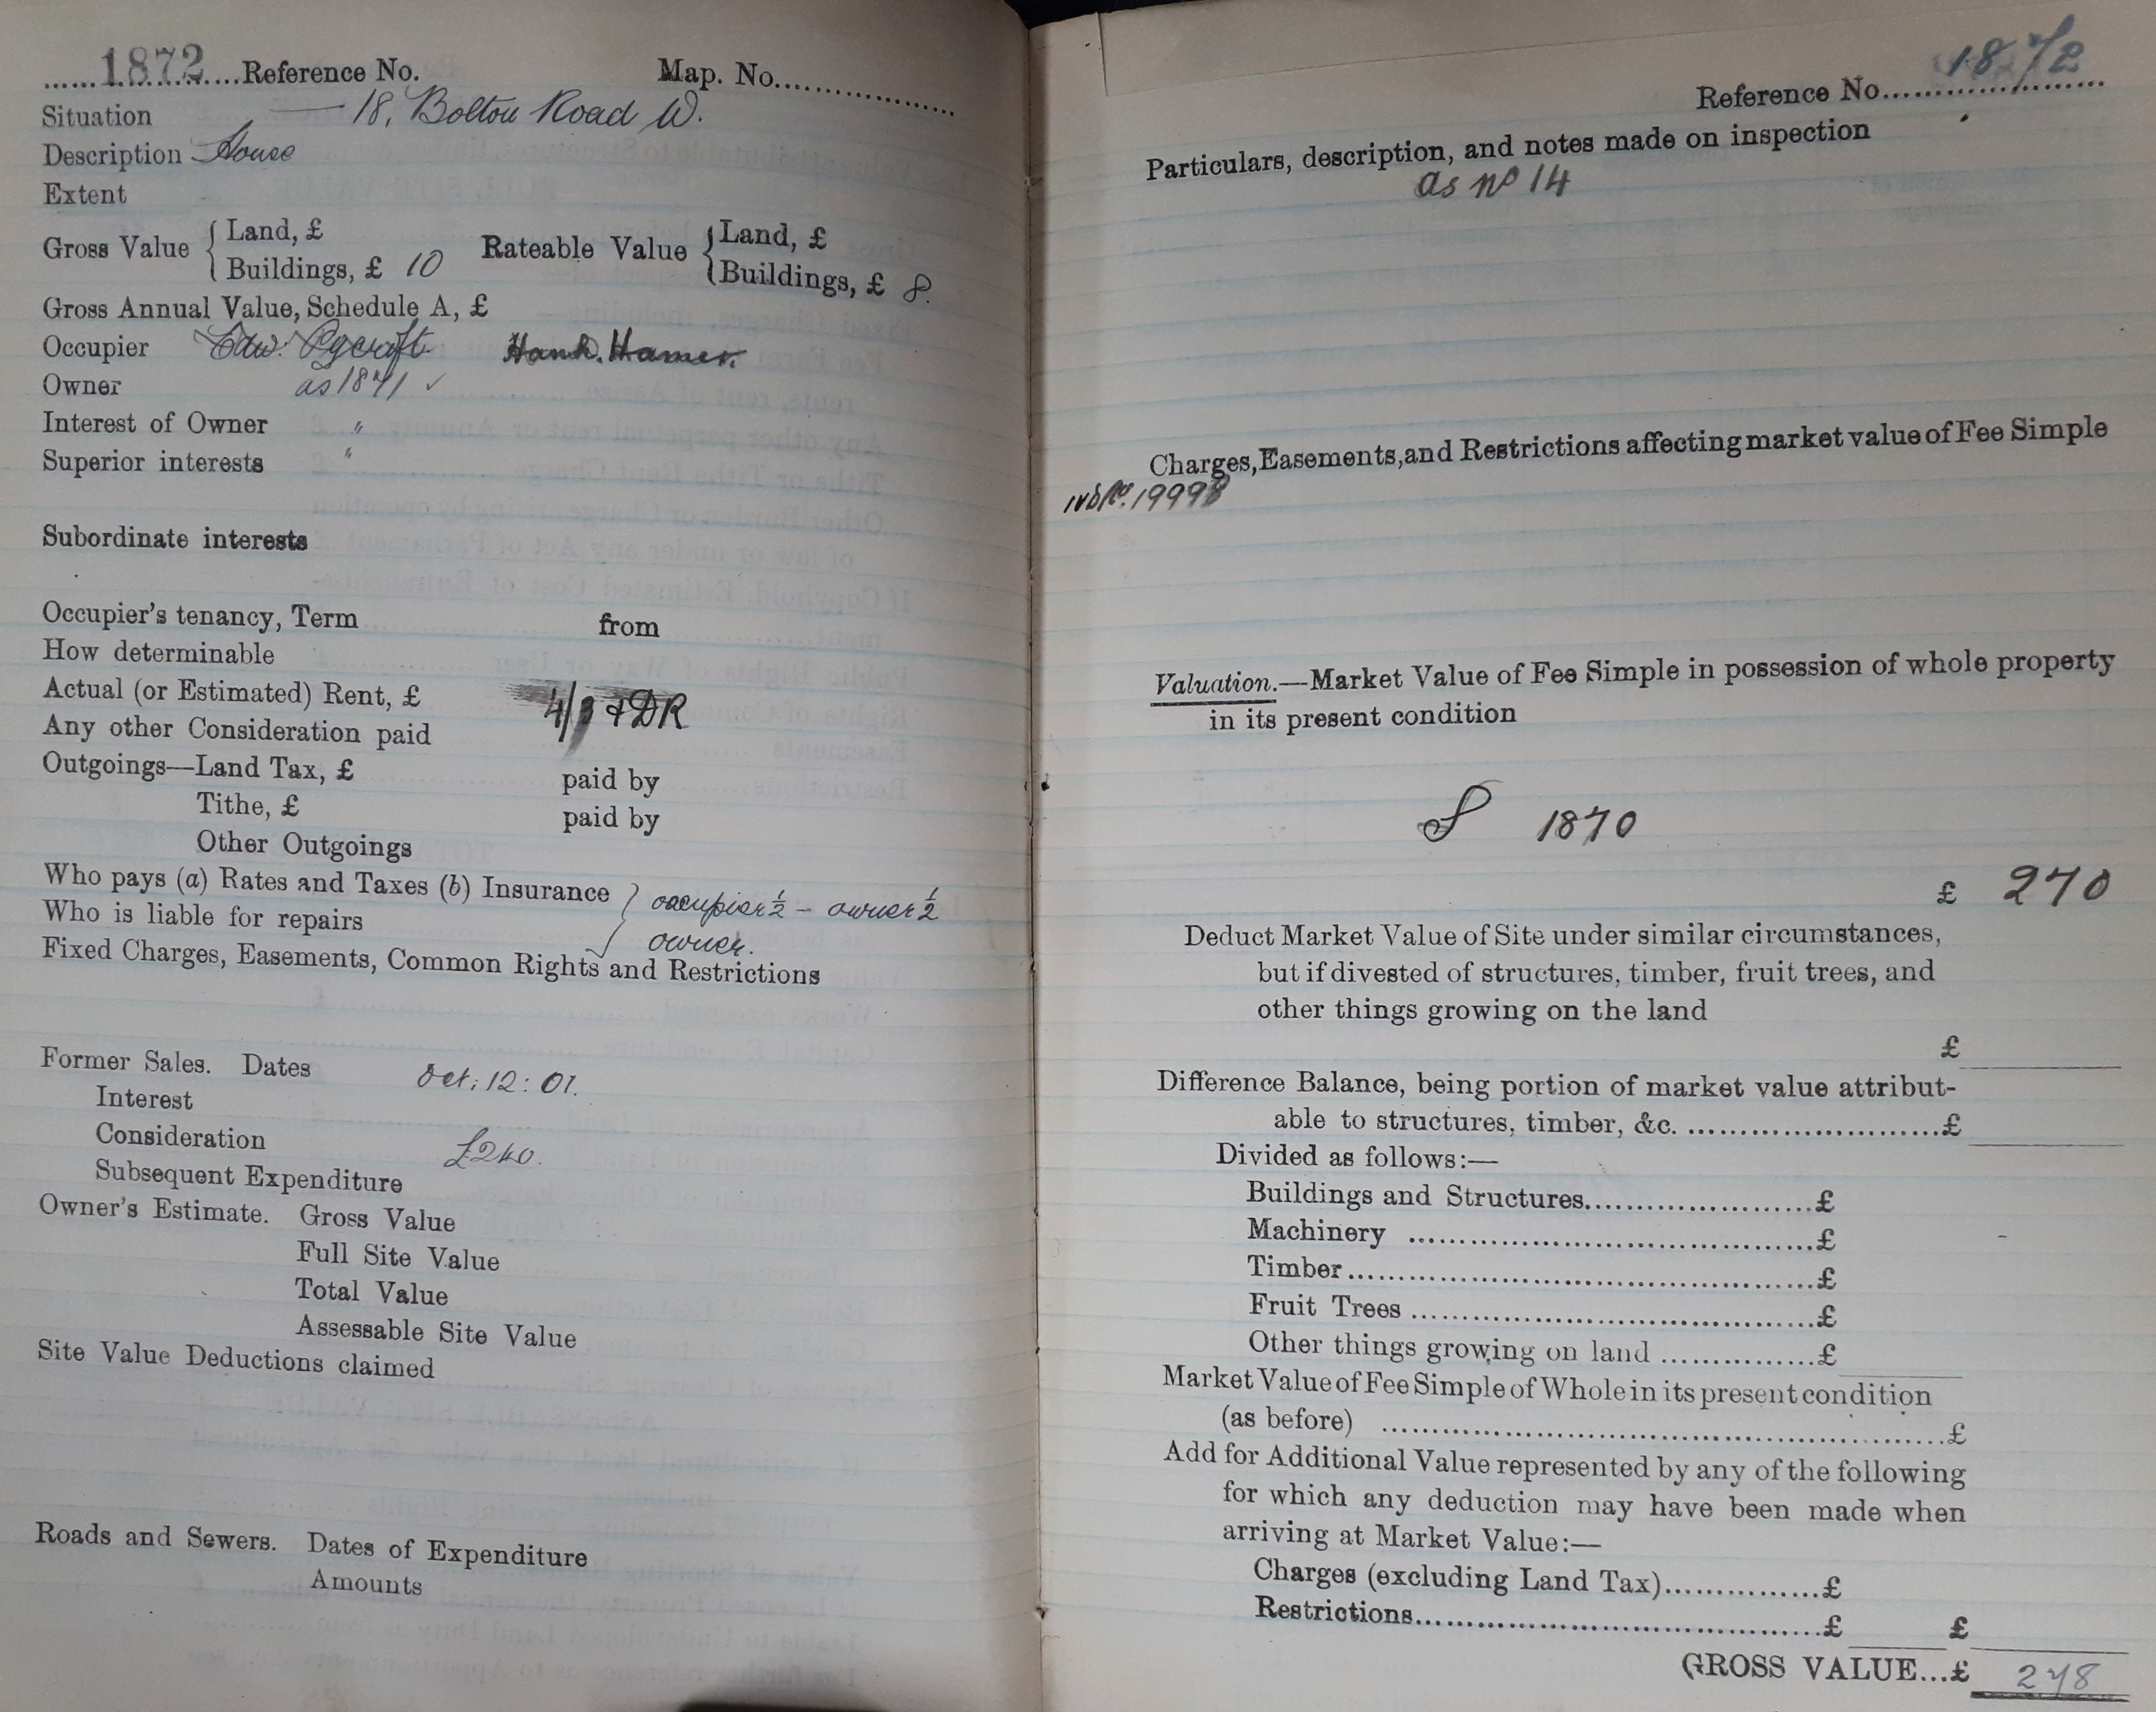 ......1872....Reference No. Map. No....................
Situation — 18, Bolton Road W.
Description House
Extent
Gross Value { Land, £ Rateable Value { Land, £
Buildings, £ 10 Buildings, £ 8.
Gross Annual Value, Schedule A, £
Occupier Edw. Pycraft Hanh. Hamer.
Owner as 1871 ✓
Interest of Owner "
Superior interests "
Subordinate interests
Occupier's tenancy, Term from
How determinable
Actual (or Estimated) Rent, £ 4/9 + DR
Any other Consideration paid
Outgoings—Land Tax, £ paid by
Tithe, £ paid by
Other Outgoings
Who pays (a) Rates and Taxes (b) Insurance } occupier ½ – owner ½
Who is liable for repairs owner.
Fixed Charges, Easements, Common Rights and Restrictions
Former Sales. Dates Oct: 12: 01.
Interest
Consideration £240.
Subsequent Expenditure
Owner's Estimate. Gross Value
Full Site Value
Total Value
Assessable Site Value
Site Value Deductions claimed
Roads and Sewers. Dates of Expenditure
Amounts
Reference No. 1872
Particulars, description, and notes made on inspection
as no 14
Charges, Easements, and Restrictions affecting market value of Fee Simple
19998
Valuation.—Market Value of Fee Simple in possession of whole property
in its present condition
1870
£ 270
Deduct Market Value of Site under similar circumstances,
but if divested of structures, timber, fruit trees, and
other things growing on the land
£
Difference Balance, being portion of market value attribut-
able to structures, timber, &c. ..........................£
Divided as follows:—
Buildings and Structures........................£
Machinery ..........................................£
Timber................................................£
Fruit Trees .........................................£
Other things growing on land ................£
Market Value of Fee Simple of Whole in its present condition
(as before) ..........................................................£
Add for Additional Value represented by any of the following
for which any deduction may have been made when
arriving at Market Value:—
Charges (excluding Land Tax)................£
Restrictions..........................................£ £
GROSS VALUE...£ 278